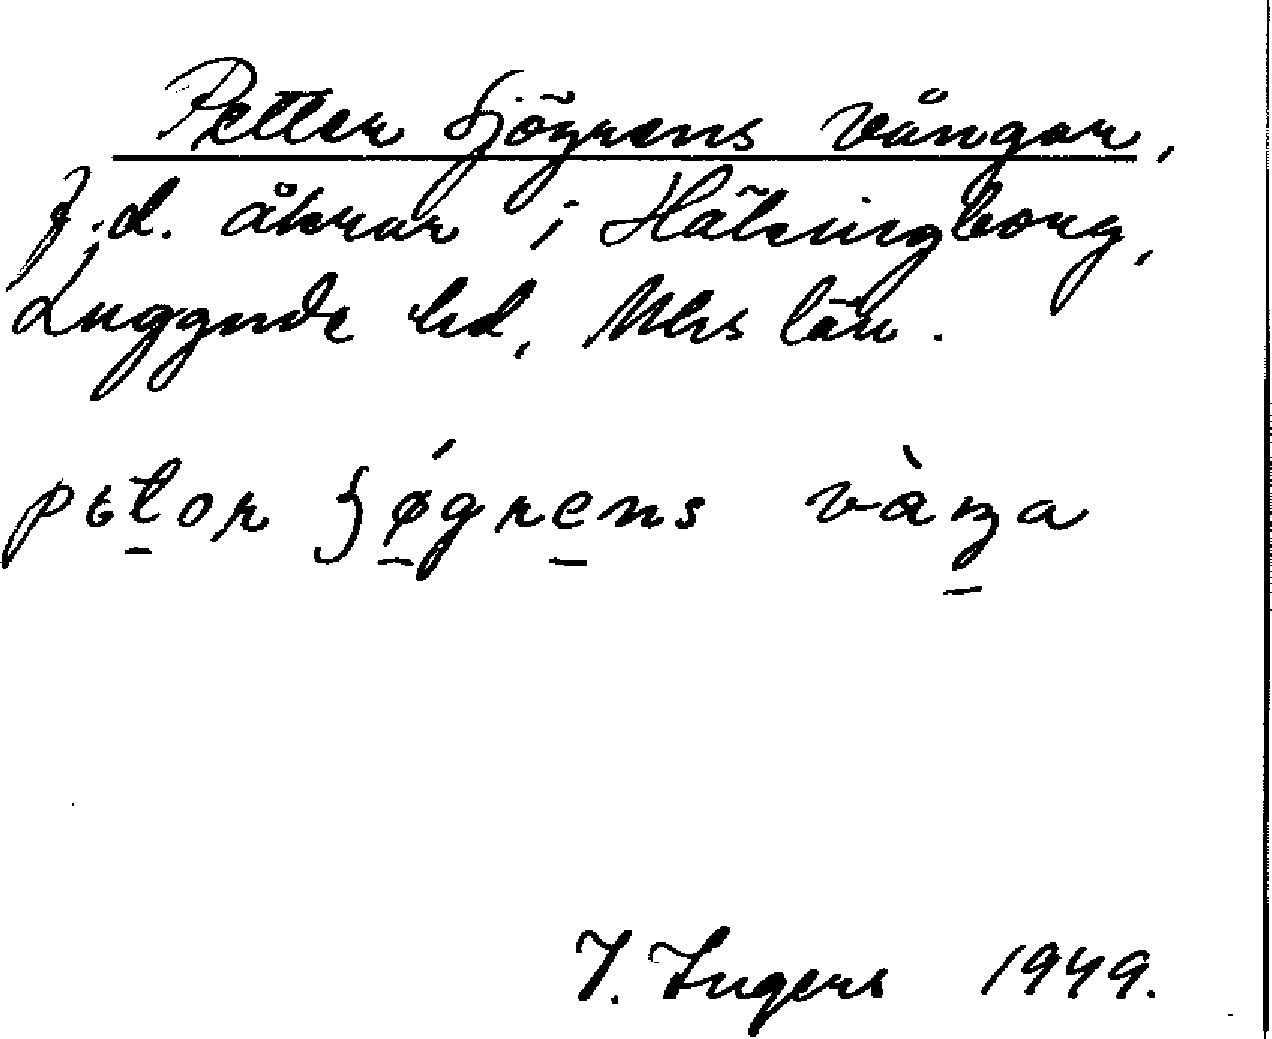 Petter Sjögrens vångar,
f.d. åkrar i Hälsingborg,
Luggude hd, Mhs län.
petor ʃøgrens vàŋa
I. Ingers 1949.